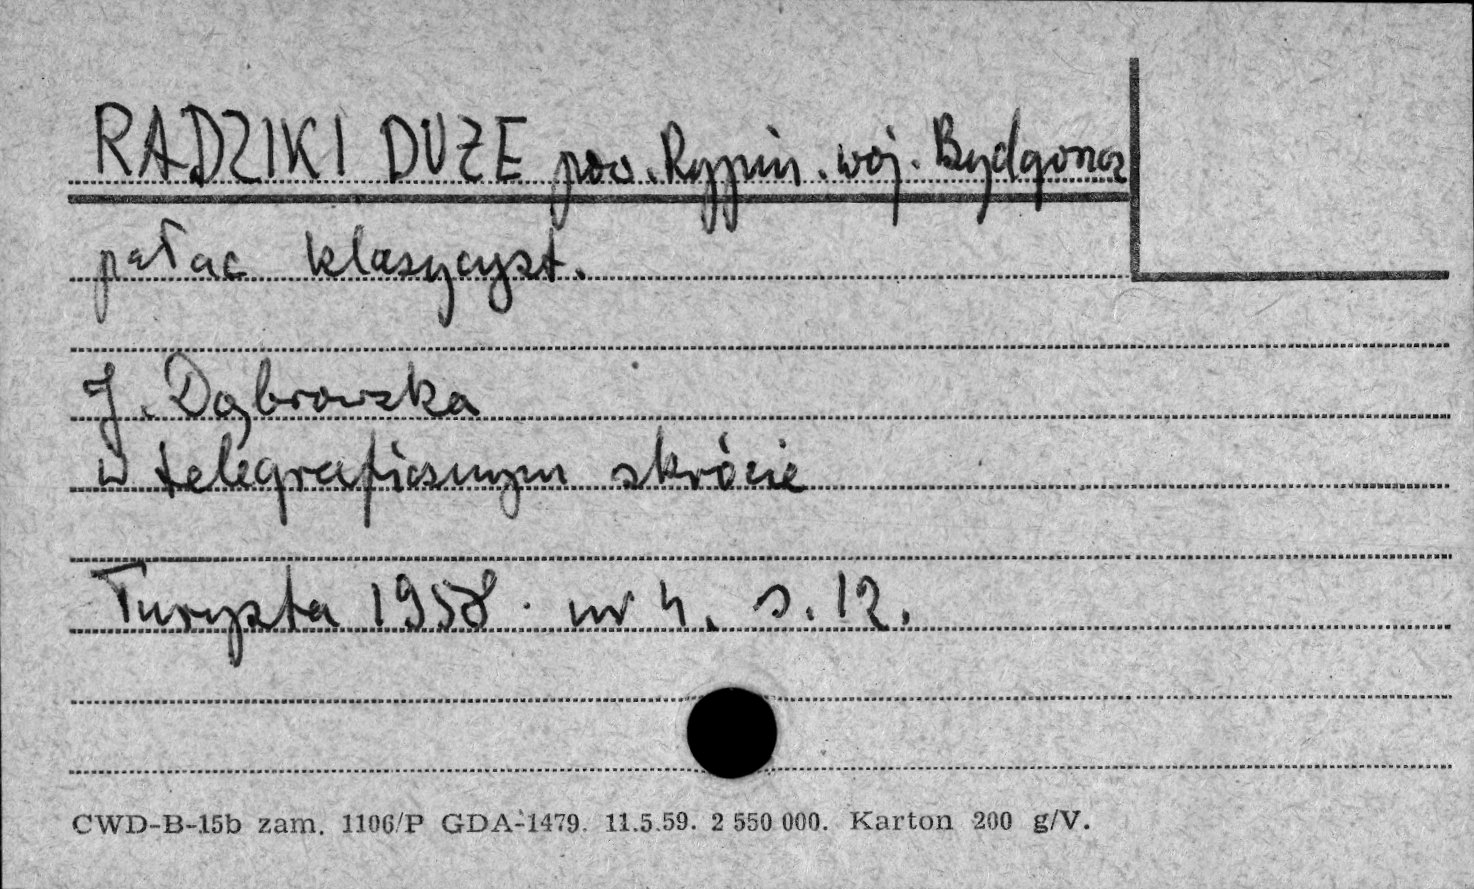 RADZIKI DUŻE pow. Rypin. woj. Bydgoszcz
pałac klasycyst.
J. Dąbrowska
w telegraficznym skrócie
Turysta 1958. nr 4. s. 12.
CWD-B-15b zam. 1106/P GDA-1479. 11.5.59. 2 550 000. Karton 200 g/V.